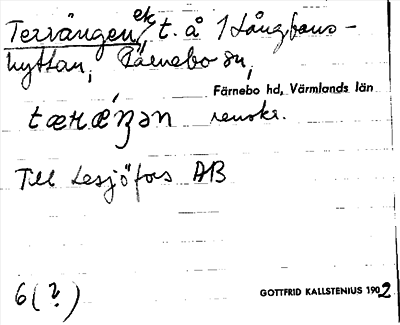 Terrängen, ek, t. å 1 Långbans-
hyttan, Färnebo sn,
Färnebo hd, Värmlands län
tæʀǽŋən renskr.
Till Lesjöfors AB
6 (?)
GOTTFRID KALLSTENIUS 1902